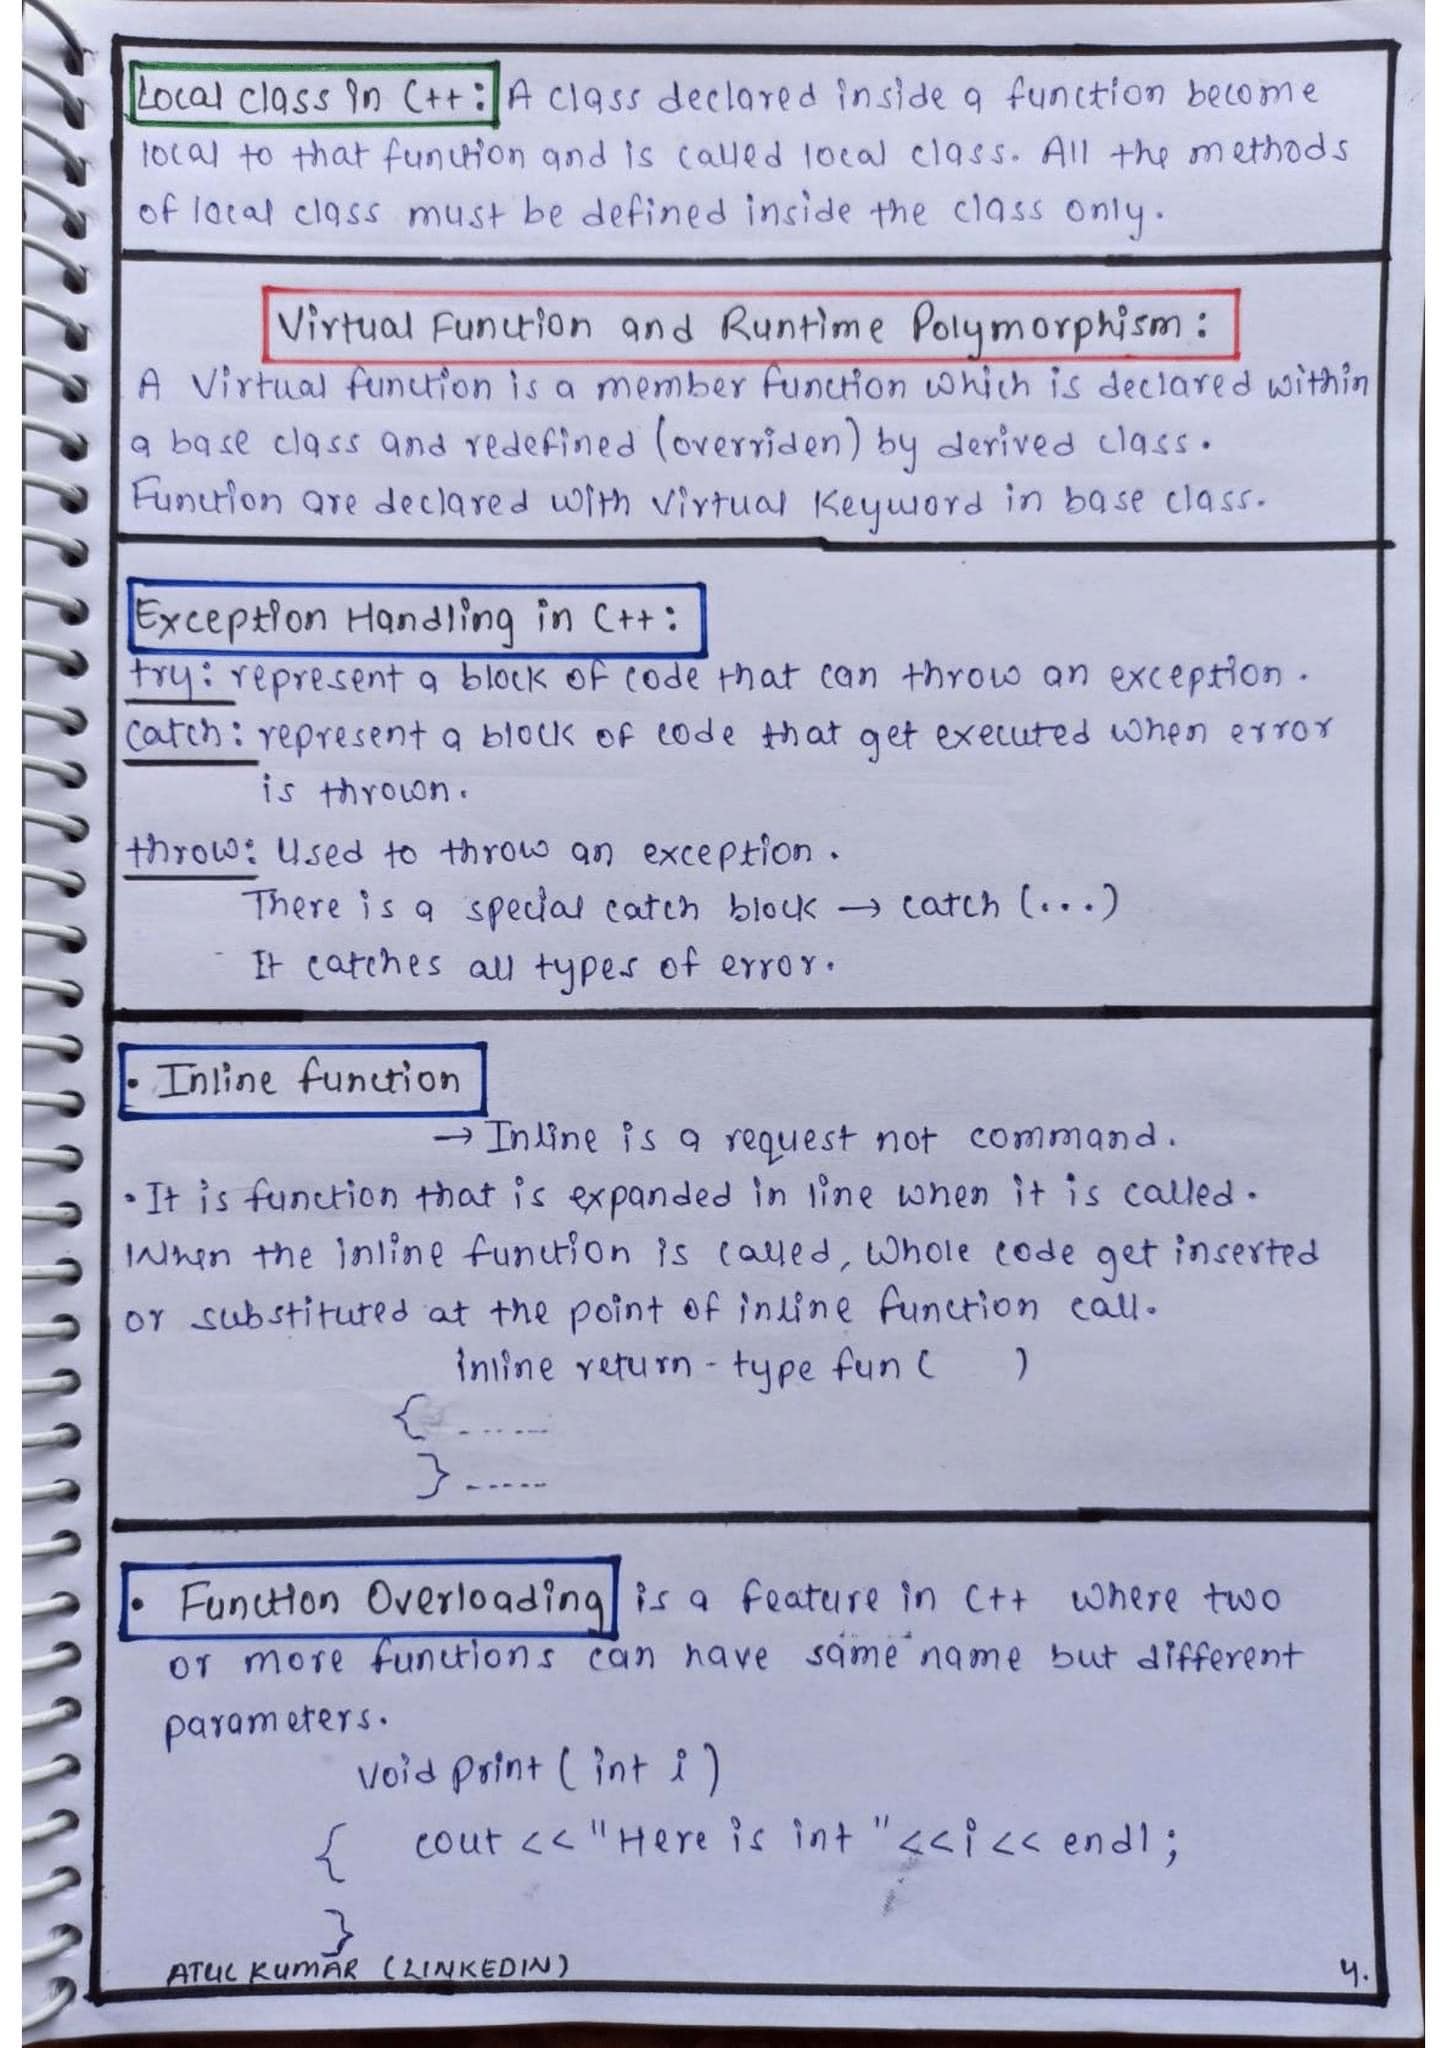 Local class in C++: A class declared inside a function become
local to that function and is called local class. All the methods
of local class must be defined inside the class only.
Virtual Function and Runtime Polymorphism:
A Virtual function is a member function which is declared within
a base class and redefined (overriden) by derived class.
Function are declared with Virtual Keyword in base class.
Exception Handling in C++:
try: represent a block of code that can throw an exception.
catch: represent a block of code that get executed when error
is thrown.
throw: Used to throw an exception.
There is a special catch block → catch (...)
It catches all types of error.
• Inline function
→ Inline is a request not command.
• It is function that is expanded in line when it is called.
When the inline function is called, Whole code get inserted
or substituted at the point of inline function call.
inline return-type fun ( )
{ ......
} ......
• Function Overloading is a feature in C++ where two
or more functions can have same name but different
parameters.
void print ( int i )
{ cout << "Here is int "<<i<< endl;
}
ATUL KUMAR (LINKEDIN)
4.